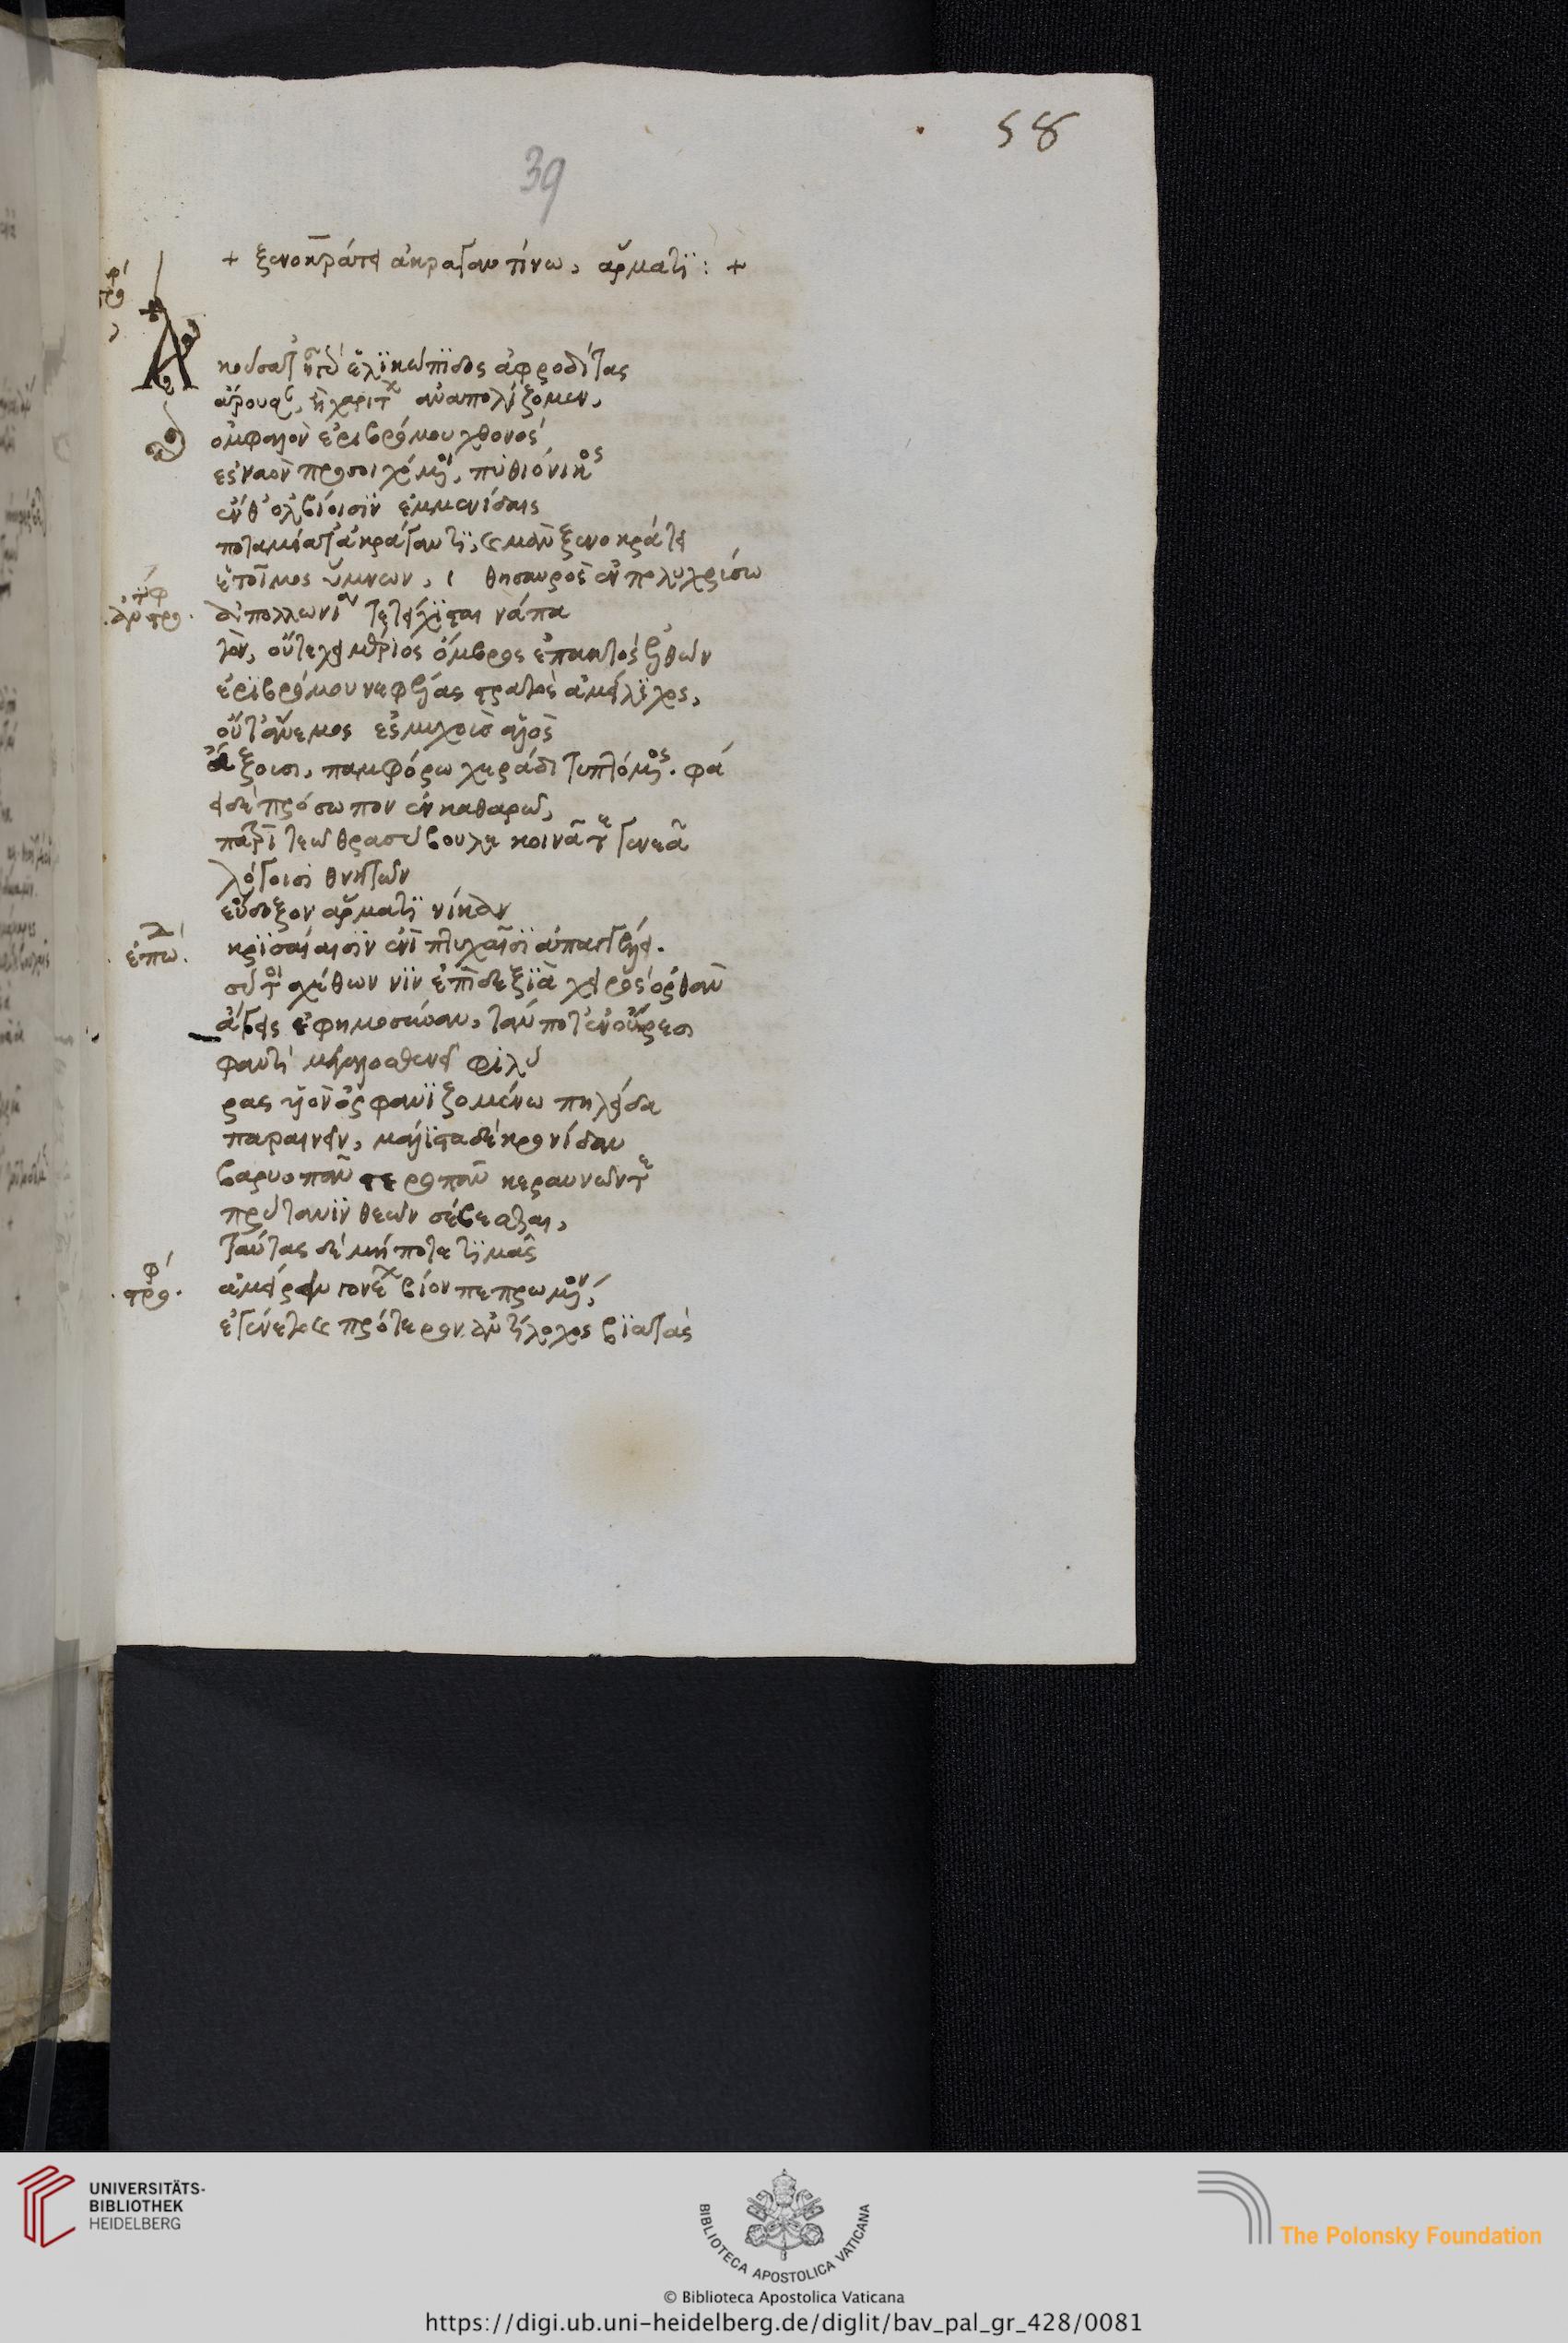 58
39
+ ξενοκράτει ἀκραγαντίνω, ἅρματϊ : +
στρο
Ἀκούσατ' ἢ γὰρ ἑλϊκώπϊδος ἀφροδίτας
ἄρουραν, ἢ χαρίτων ἀναπολίζομεν,
ὀμφαλὸν ἐριβρόμου χθονὸς
ἐς ναὸν προσοιχόμενοι, πυθιόνικος
ἔνθ' ὀλβίοισϊν ἐμμενίδαις
ποταμίατ' ἀκράγαντϊ, καὶ μὰν ξενοκράτει
ἑτοῖμος ὕμνων, θησαυρὸς ἐν πολυχρύσω
ἀντιστρο.
ἀπολλωνίαν τετείχϊσται νάπα
τὸν, οὔτε χειμέριος ὄμβρος ἐπακτὸς ἐλθὼν
ἐρϊβρόμου νεφέλας στρατὸς ἀμείλϊχος,
οὔτ' ἄνεμος ἐς μυχοὺς ἁλὸς
ἄξοισι, παμφόρω χεράδι τυπτόμενος. φά
ει δὲ πρόσωπον ἐν καθαρῶ,
πατρὶ τεῶ θρασύβουλε κοινάν τε γενεᾶ
λόγοισι θνητῶν
εὔδοξον ἅρματϊ νίκαν
ἐπω.
κρϊσαίαισϊν ἐνὶ πτυχαῖσϊ ἀπαγγελεῖ.
σύ τοι σχέθων νϊν ἐπὶ δεξϊὰ χειρὸς ὀρθὰν
ἄγεις ἐφημοσύναν, τάν ποτ' ἐν οὔρεσι
φαντὶ μεγαλοσθενεῖ φιλύ
ρας υἱὸν ὀρφανϊζομένω πηλείδα
παραινεῖν, μάλϊστα δὲ κρονίδαν
βαρυόπαν στεροπᾶν κεραυνῶν τε
πρύτανϊν θεῶν σέβεσθαι,
ταύτας δὲ μήποτε τϊμᾶς
στρο.
ἀμείρειν γονέων βίον πεπρωμένον,
ἐγένετο καὶ πρότερον ἀντίλοχος βϊατὰς
UNIVERSITÄTS-
BIBLIOTHEK
HEIDELBERG
BIBLIOTECA APOSTOLICA VATICANA
The Polonsky Foundation
© Biblioteca Apostolica Vaticana
https://digi.ub.uni-heidelberg.de/diglit/bav_pal_gr_428/0081